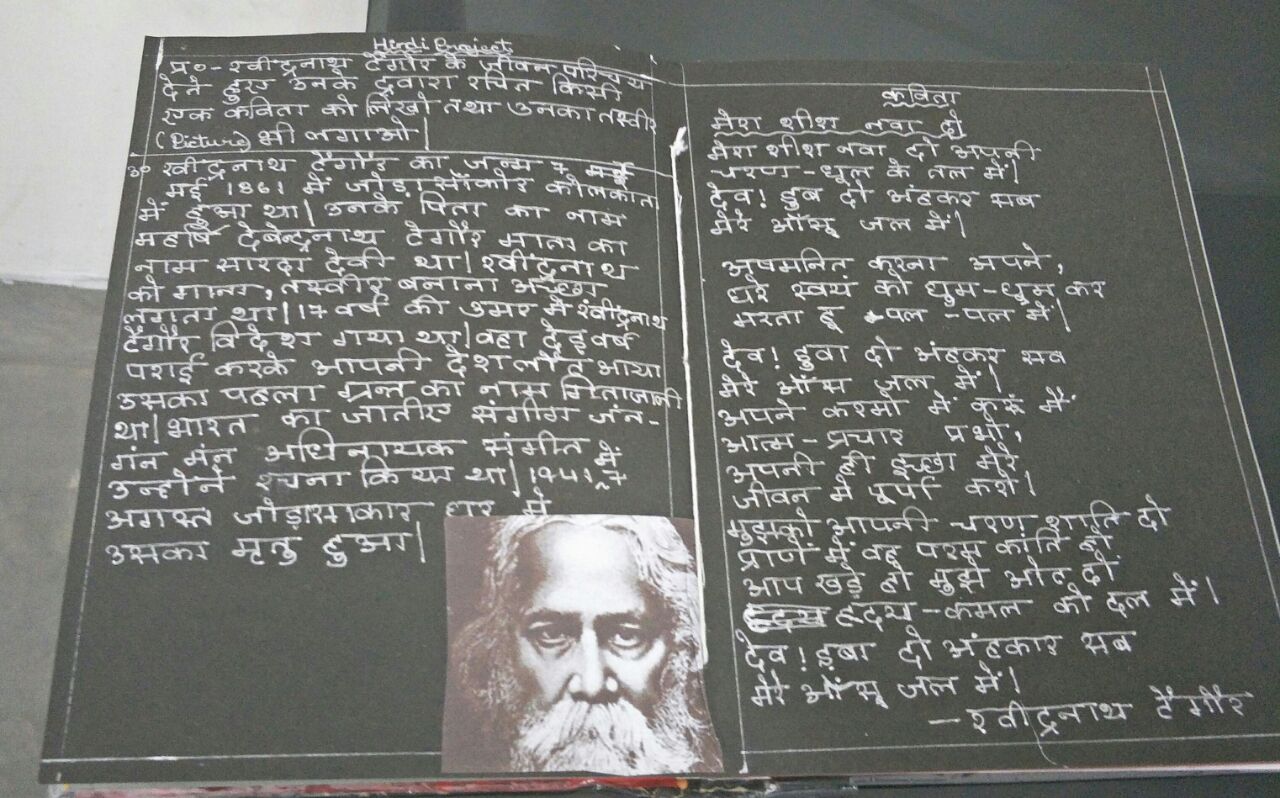 Hindi Project
प्र०- रवीद्रनाथ टैगोर के जीवन परिचय
देने हुए उनके द्वारा रचित किसी
एक कविता को लिखो तथा उनका तस्वीर
(Picture) भी लगाओ|
उ० रवीद्रनाथ टैगौर का जन्म 7
मई 1861 में जोड़ासाँकोर कोलकात
में हुआ था| उनके पिता का नाम
महर्षि देबेन्द्रनाथ टैगौर माता का
नाम सारदा देवी था| रवींद्रनाथ
को गाना, तस्वीर बनाना अच्छा
लगता था| 17 वर्ष की उमर में रवींद्रनाथ
टैगौर विदेश गया था| वहा देड़ वर्ष
पराई करके आपनी देश लौत आया
उसका पहला ग्रन्त का नाम गिताजानी
था| भारत का जातीए संगीत जन-
गंन मंन अधिनायक संगीत में
उन्होंने रचना किया था| 1941 7
अगस्त जोड़ासाकार घर में
उसका मृतु हुआ|
कविता
मेरा शीश नवा दो
मेरा शीश नवा दो अपनी
चरण-धूल के तल में|
देव! डुब दो अंहकर सब
मेरे आँसू जल में|
अपमनित करना अपने,
घेरे स्वयं को घुम-घुम कर
मरता हू पल-पल में|
देव! डुवा दो अंहकर सव
मेरे आँस जल में|
अपने करमो में करूं मैं
आत्म-प्रचार प्रभो,
अपनी ही इच्छा मेरे
जीवन में पूर्पा करो|
मुझको आपनी चरण शाति दो
प्राणे में वह परम कांति हो
आप खड़े हो मुझे ओत दो
हृदय-कमल को दल में|
देव! डुबा दो अंहकार सब
मेरे आँसू जल में|
- रवीद्रनाथ टैगौर